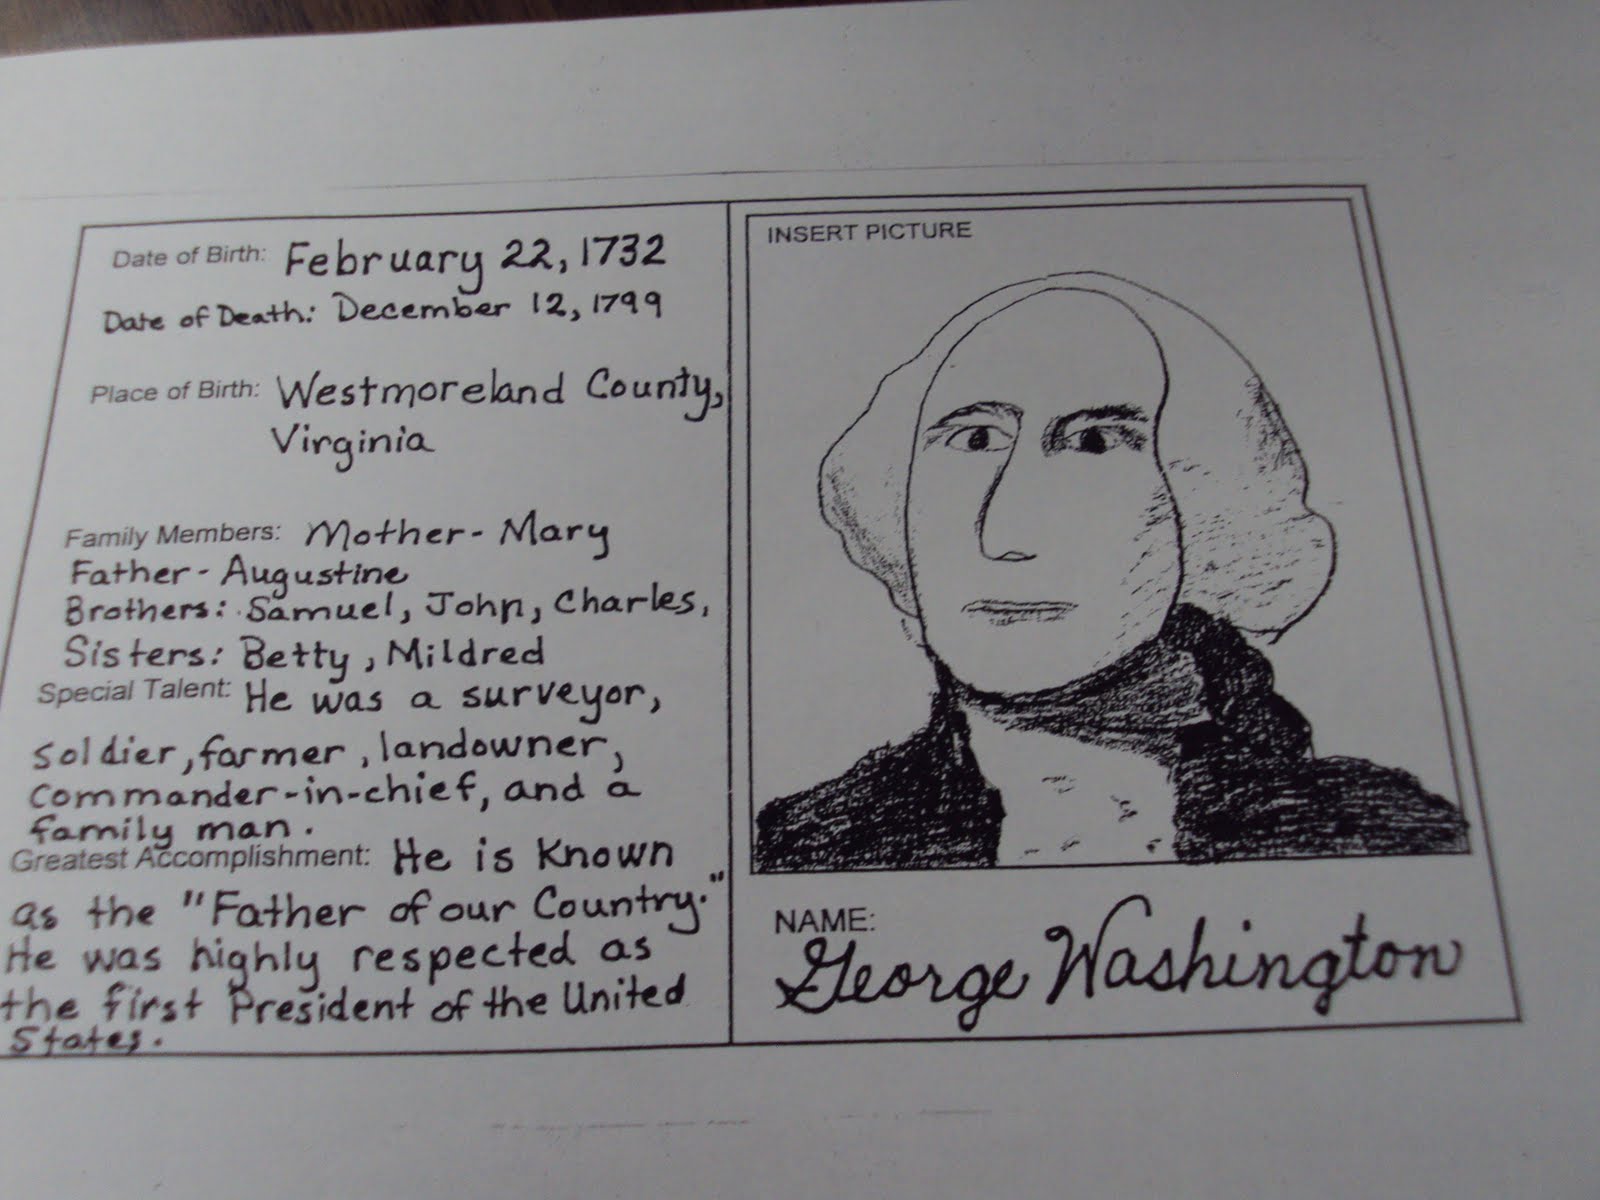 Date of Birth: February 22, 1732
Date of Death: December 12, 1799
Place of Birth: Westmoreland County,
Virginia
Family Members: Mother - Mary
Father - Augustine
Brothers: Samuel, John, Charles,
Sisters: Betty, Mildred
Special Talent: He was a surveyor,
soldier, farmer, landowner,
commander-in-chief, and a
family man.
Greatest Accomplishment: He is known
as the "Father of our Country."
He was highly respected as
the first President of the United
States.
INSERT PICTURE
NAME:
George Washington